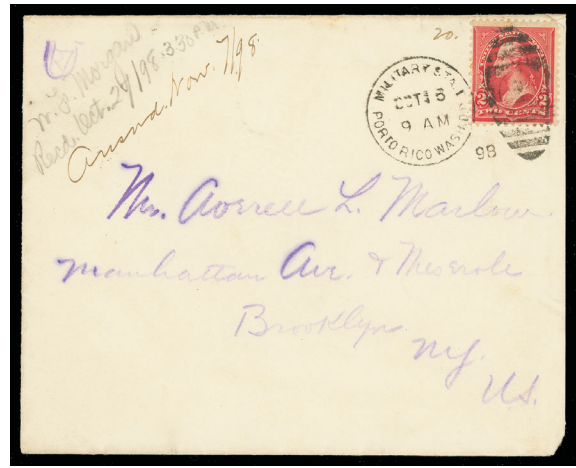 W. F. Morgan
Recd. Oct. 24/98. 3.30 P.M.
Answd. Nov. 7/98
20.
MILITARY STA. 1
OCT 16
9 AM
98
PORTO RICO WASH. D.C.
2 2
Mr. Averell L. Marlow
Manhattan Ave. & Meserole
Brooklyn
N.Y.
U.S.